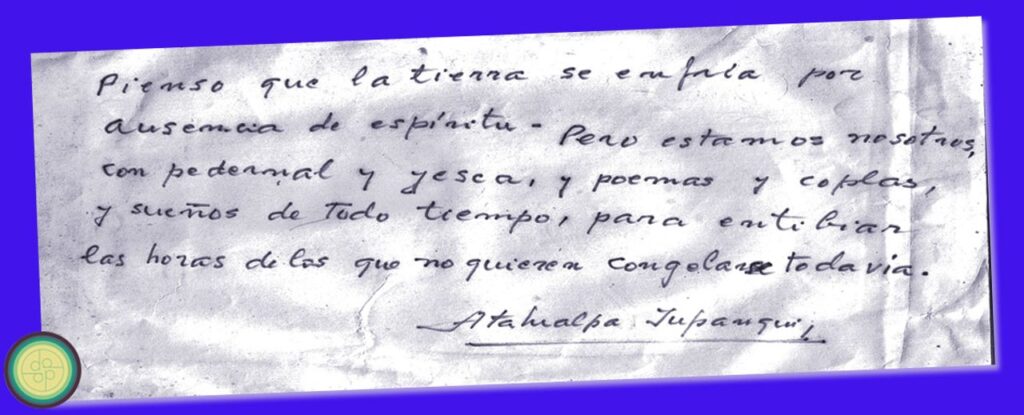 Pienso que la tierra se enfría por
ausencia de espíritu - Pero estamos nosotros,
con pedernal y yesca, y poemas y coplas,
y sueños de Todo tiempo, para entibiar
las horas de los que no quieren congelarse todavía.
Atahualpa Yupanqui,